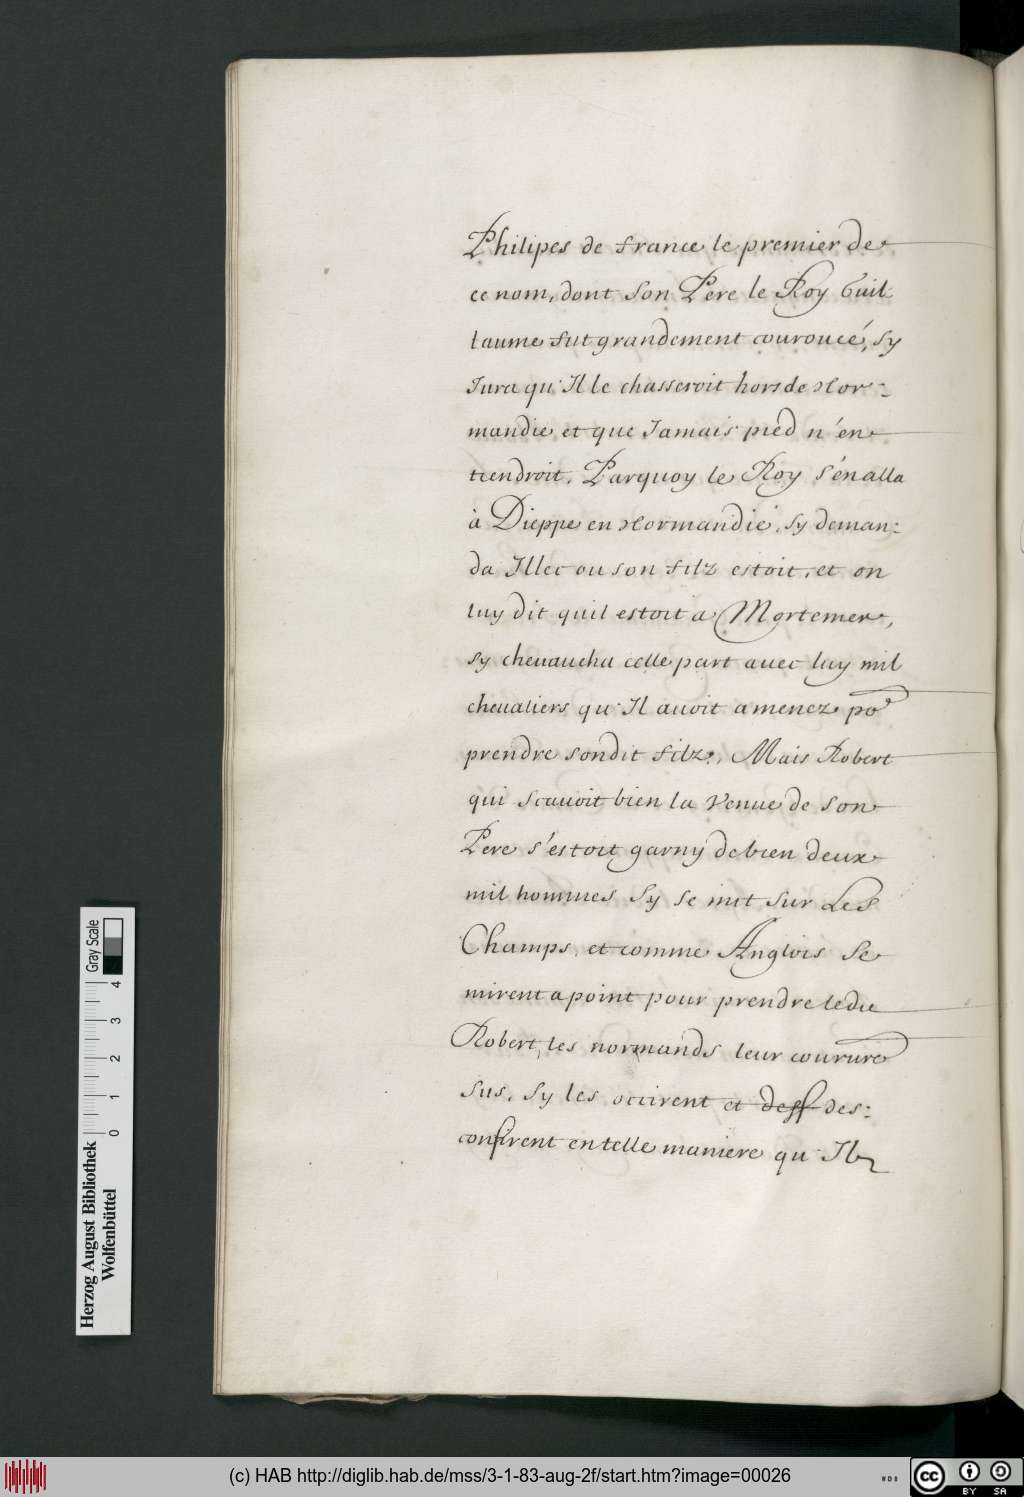 Philipes de france le premier de
ce nom, dont son Pere le Roy Guil
laume fut grandement couroucé, sy
Jura qu'Il le chasseroit hors de Nor-
mandie et que Jamais pied n'en
tiendroit, Parquoy le Roy s'en alla
à Dieppe en Normandie, sy deman:
da Illec ou son filz estoit, et on
luy dit quil estoit a Mortemer,
sy cheuaucha celle part auec luy mil
cheualiers qu'Il auoit amenez po^r
prendre sondit filz, Mais Robert
qui scauoit bien la venue de son
Pere s'estoit garny de bien deux
mil hommes sy se mit sur Les
Champs, et comme Anglois se
mirent a point pour prendre ledit
Robert, les normands leur courure
sus, sy les occirent et des:
confirent en telle maniere qu'Ilz
Gray Scale
0 1 2 3 4
Herzog August Bibliothek
Wolfenbüttel
(c) HAB http://diglib.hab.de/mss/3-1-83-aug-2f/start.htm?image=00026
WDB
cc BY SA